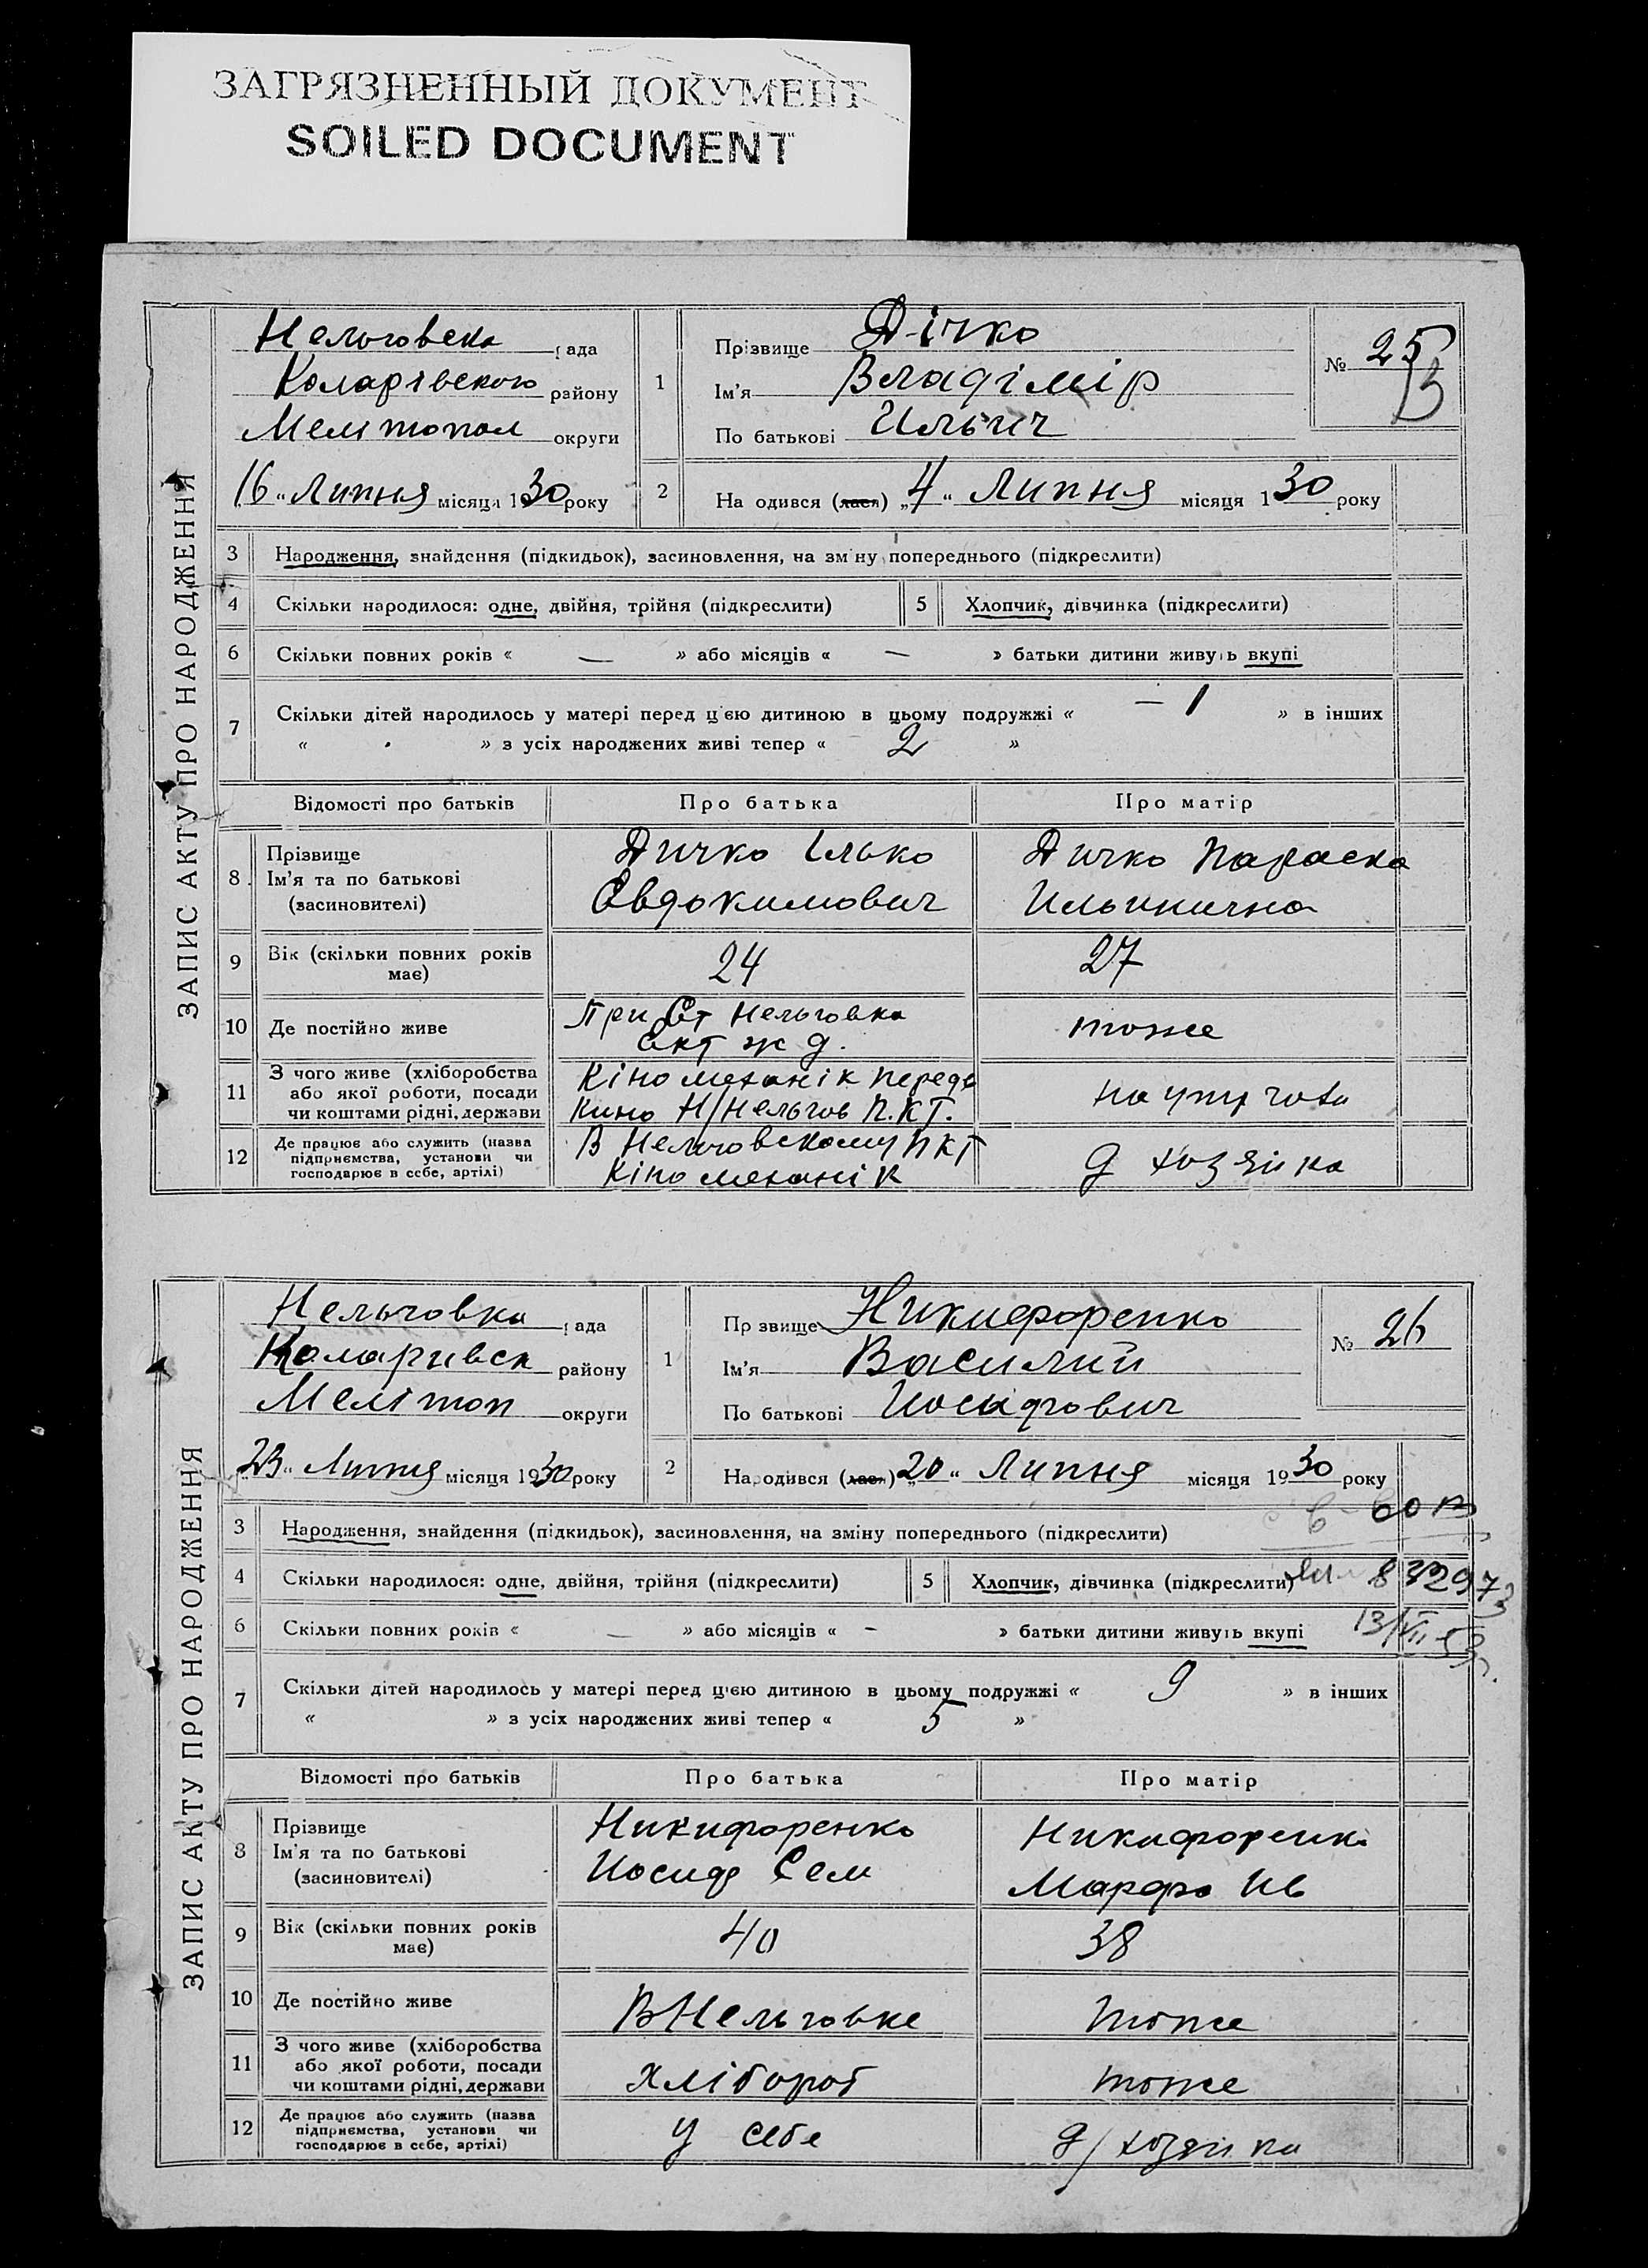 ЗАГРЯЗНЕННЫЙ ДОКУМЕНТ
SOILED DOCUMENT
ЗАПИС АКТУ ПРО НАРОДЖЕННЯ
Нельговска рада
Коларівского району
Мелітопол округи
16 „ Липня місяця 1930 року
1
Прізвище Дічко
Ім'я Владімір
По батькові Ильич
№ 25
2
На одився (лася) „4“ Липня місяця 130 року
3 Народження, знайдення (підкидьок), засиновлення, на зм ну попереднього (підкреслити)
4 Скільки народилося: одне, двійня, трійня (підкреслити) 5 Хлопчик, дівчинка (підкреслити)
6 Скільки повних років « — » або місяців « — » батьки дитини живуть вкупі
7 Скільки дітей народилось у матері перед цією дитиною в цьому подружжі « — 1 » в інших
« » з усіх народжених живі тепер « 2 »
Відомості про батьків Про батька Про матір
8 Прізвище
Ім'я та по батькові
(засиновителі)
Дичко Ілько
Евдокимович
Дичко Параска
Ильинична
9 Вік (скільки повних років
має)
24 27
10 Де постійно живе
При Ст Нельговка
Ект ж д.
тоже
11 З чого живе (хліборобства
або якої роботи, посади
чи коштами рідні, держави
Кіномеханік
Кино Н/Нельгов П.К.Т.
12 Де працює або служить (назва
підприємства, установи чи
господарює в себе, артілі)
В Нельговскому ПКТ
Кіномеханік
д хозяйка
ЗАПИС АКТУ ПРО НАРОДЖЕННЯ
Нельговка рада
Коларивск району
Мелітоп округи
„23“ Липня місяця 1930 року
1
Пр звище Никифоренко
Ім'я Василий
По батькові Иосифович
№ 26
2
Народився (лася) „20“ Липня місяця 1930 року
3 Народження, знайдення (підкидьок), засиновлення, на зміну попереднього (підкреслити)
4 Скільки народилося: одне, двійня, трійня (підкреслити) 5 Хлопчик, дівчинка (підкреслити)
6 Скільки повних років « — » або місяців « - » батьки дитини живуть вкупі
13/VII-53
7 Скільки дітей народилось у матері перед цією дитиною в цьому подружжі « 9 » в інших
« » з усіх народжених живі тепер « 5 »
Відомості про батьків Про батька Про матір
8 Прізвище
Ім'я та по батькові
(засиновителі)
Никифоренко
Иосиф Сем
Никифоренко
Марфа Ив
9 Вік (скільки повних років
має)
40 38
10 Де постійно живе
В Нельговке
тоже
11 З чого живе (хліборобства
або якої роботи, посади
чи коштами рідні, держави
Хлібороб
тоже
12 Де працює або служить (назва
підприємства, установи чи
господарює в себе, артілі)
У себе
д/хозяйка